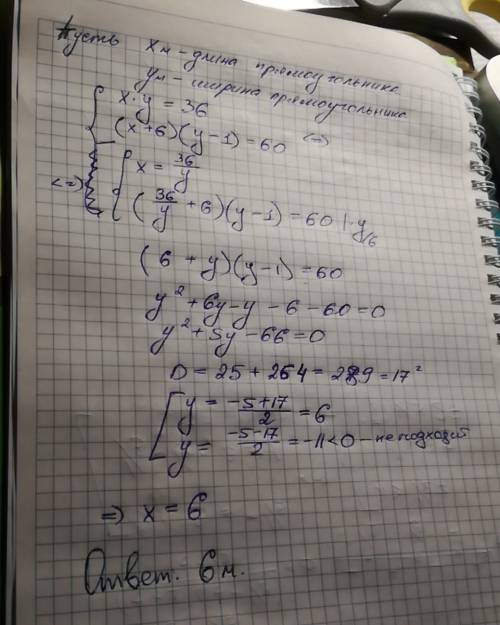 Пусть x м - длина прямоугольника
y м - ширина прямоугольника
x · y = 36
(x+6)(y-1)=60 <=>
<=> x = 36/y
(36/y + 6)(y-1) = 60 | · y/6
(6 + y)(y-1)=60
y² + 6y - y - 6 - 60 = 0
y² + 5y - 66 = 0
D = 25 + 264 = 289 = 17²
y = (-5+17)/2 = 6
y = (-5-17)/2 = -11 < 0 - не подходит
=> x = 6
Ответ. 6 м.